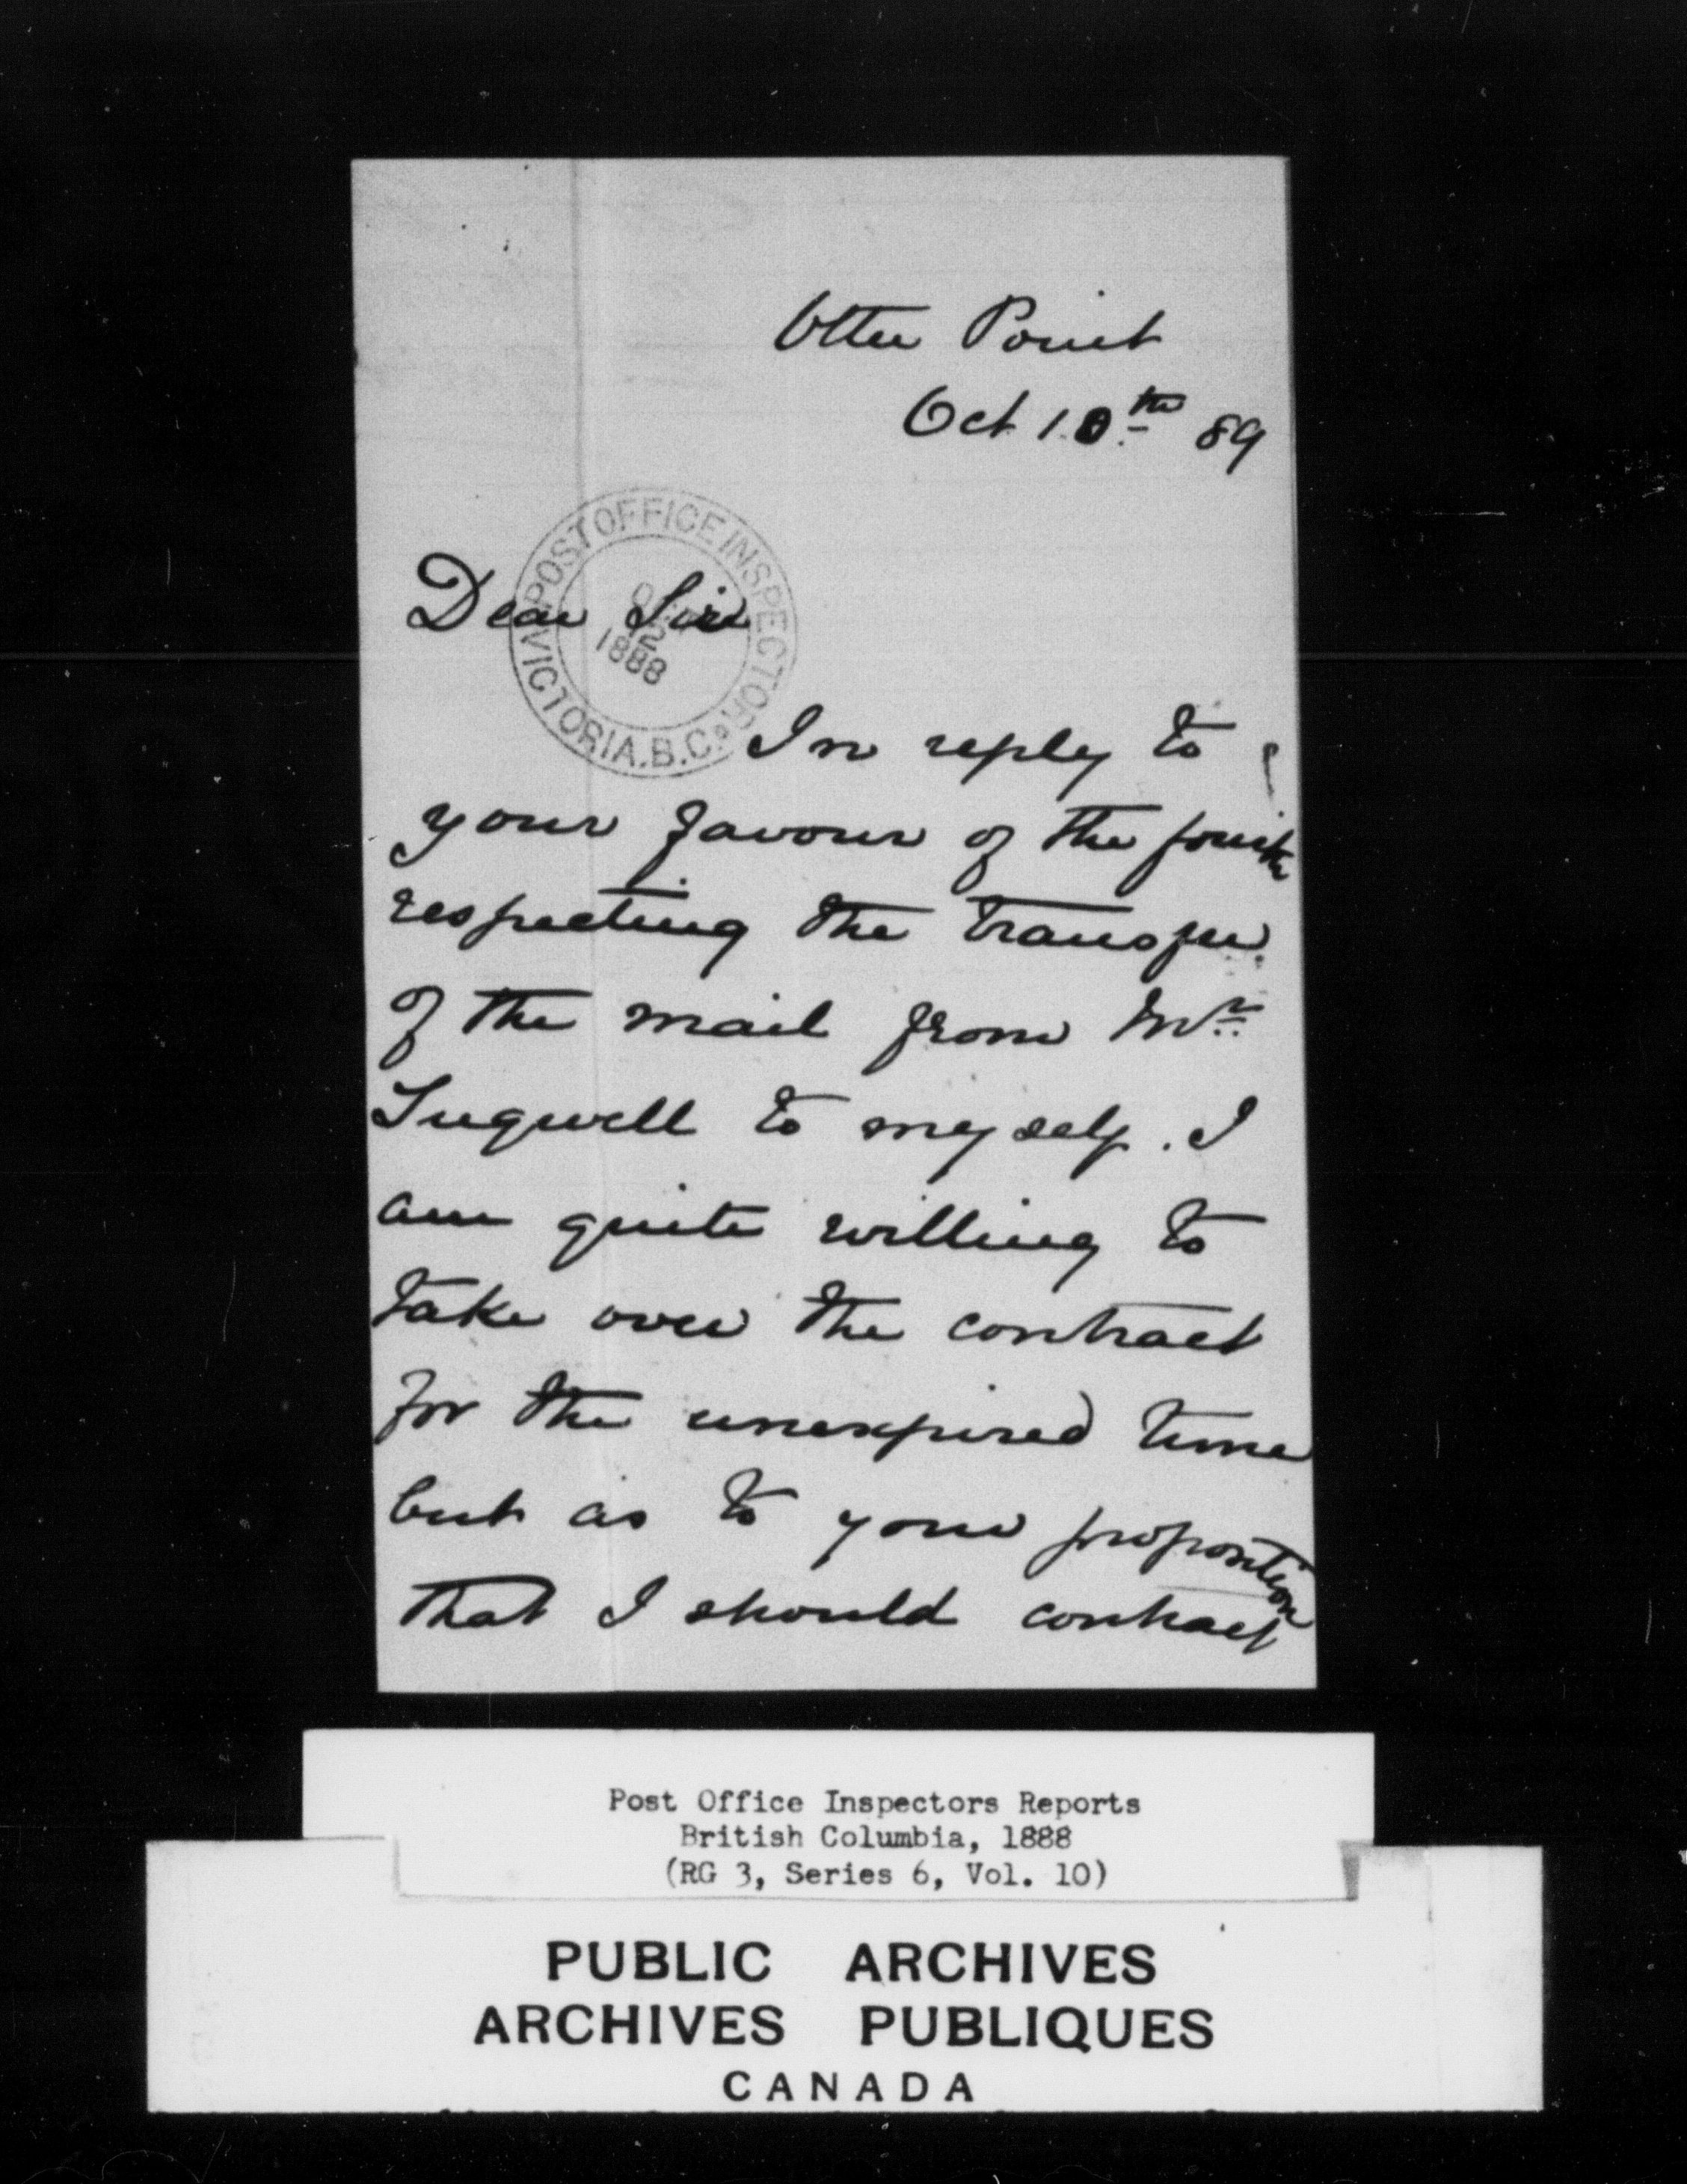 Otter Point
Oct 10th 89
POST OFFICE INSPECTOR
VICTORIA.B.C.
OCT
12
1888
Dear Sir
In reply to
your favour of the fourth
respecting the transfer
of the mail from Mr
Tugwell to myself. I
am quite willing to
take over the contract
for the unexpired time
but as to your proposition
that I should contract
Post Office Inspectors Reports
British Columbia, 1888
(RG 3, Series 6, Vol. 10)
PUBLIC ARCHIVES
ARCHIVES PUBLIQUES
CANADA